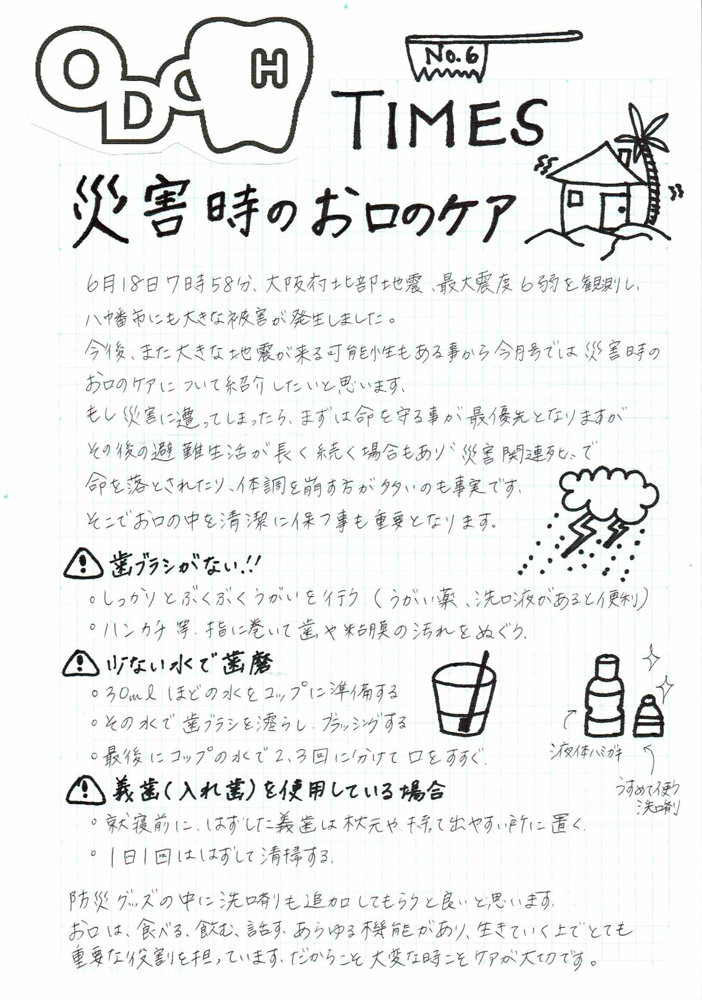 ODC H
No.6
TIMES
災害時のお口のケア
6月18日7時58分、大阪府北部地震、最大震度6弱を観測し、
八幡市にも大きな被害が発生しました。
今後、また大きな地震が来る可能性もある事から今月号では災害時の
お口のケアについて紹介したいと思います。
もし災害に遭ってしまったら、まずは命を守る事が最優先となりますが
その後の避難生活が長く続く場合もあり“災害関連死”で
命を落とされたり、体調を崩す方が多いのも事実です。
そこでお口の中を清潔に保つ事も重要となります。
歯ブラシがない!!
・しっかりとぶくぶくうがいを行う (うがい薬、洗口液があると便利)
・ハンカチ等、指に巻いて歯や粘膜の汚れをぬぐう。
少ない水で歯磨
・30mlほどの水をコップに準備する
・その水で歯ブラシを濡らし、ブラッシングする
・最後にコップの水で2、3回に分けて口をすすぐ。
液体ハミガキ
うすめて使う
洗口剤
義歯(入れ歯)を使用している場合
・就寝前に、はずした義歯は枕元や持って出やすい所に置く。
・1日1回ははずして清掃する。
防災グッズの中に洗口剤も追加してもらうと良いと思います。
お口は、食べる、飲む、話す、あらゆる機能があり、生きていく上でとても
重要な役割を担っています。だからこそ大変な時こそケアが大切です。